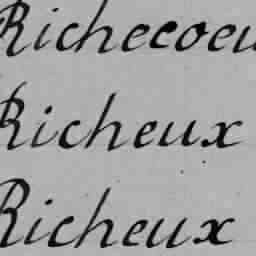 Richecoeu
Richeux
Richeux